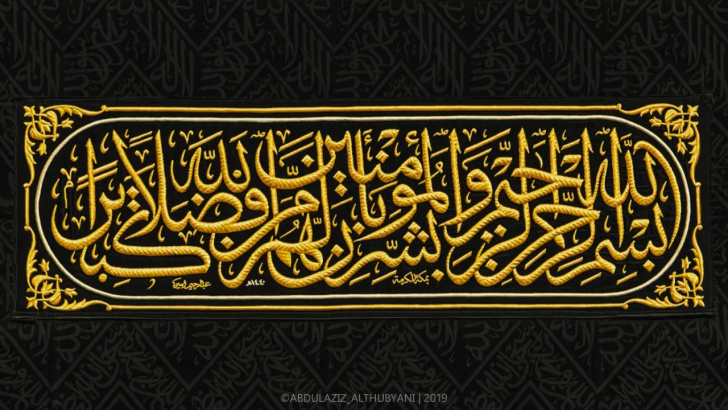 بسم الله الرحمن الرحيم وبشر المؤمنين بأن لهم من الله فضلا كبيرا
بمكة المكرمة ١٤٤٠هـ عبدالرحيم أمين
©ABDULAZIZ_ALTHUBYANI | 2019